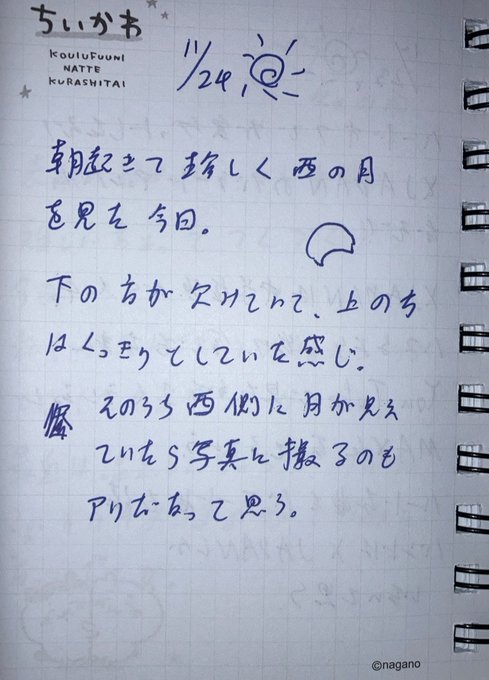 ちいかわ
KOULUFUUNI
NATTE
KURASHITAI
11/24
朝起きて珍しく西の月
を見た今日。
下の方が欠けてて、上のち
はくっきりとしていた感じ。
そのうち西側に月が見え
ていたら写真に撮るのも
アリだなって思う。
©nagano